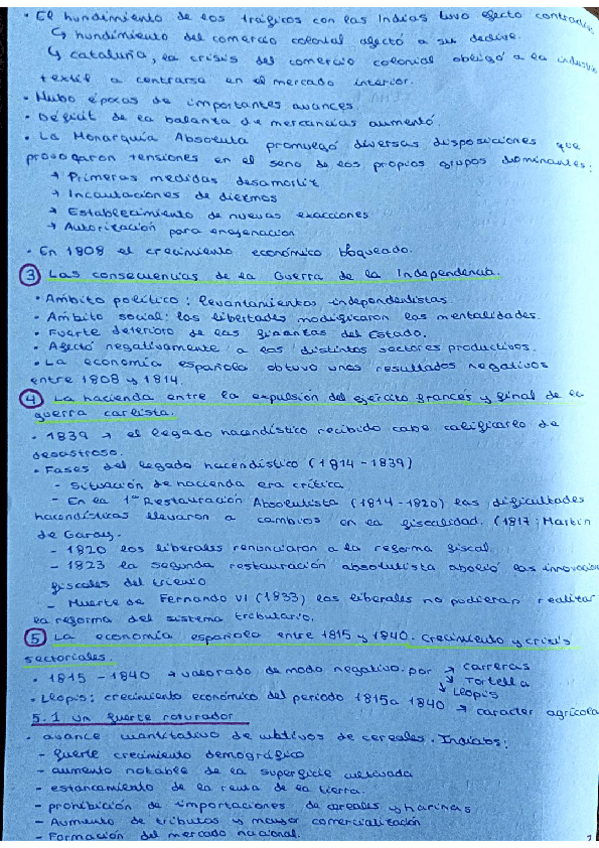 • El hundimiento de los tráficos con las Indias tuvo efecto contradic
↳ hundimiento del comercio colonial afectó a su declive.
↳ cataluña, la crisis del comercio colonial obligó a la industria
textil a centrarse en el mercado interior.
• Hubo épocas de importantes avances.
• Déficit de la balanza de mercancías aumentó.
• La Monarquía Absoluta promulgó diversas disposiciones que
provogaron tensiones en el seno de los propios grupos dominantes:
→ Primeras medidas desamortiz
→ Incautaciones de diezmos
→ Establecimiento de nuevas exacciones
→ Autorización para enagenación
• En 1808 el crecimiento económico bloqueado.
③ Las consecuencias de la Guerra de la Independencia.
• Ámbito político: levantamientos independentistas.
• Ámbito social: las libertades modificaron las mentalidades.
• Fuerte deterioro de las finanzas del Estado.
• Afectó negativamente a los distintos sectores productivos.
• La economía española obtuvo unos resultados negativos
entre 1808 y 1814.
④ La hacienda entre la expulsión del ejército francés y final de la
guerra carlista.
• 1839 → el legado hacendístico recibido cabe calificarlo de
desastroso.
• Fases del legado hacendístico (1814-1839)
- Situación de hacienda era crítica
- En la 1ª Restauración Absolutista (1814-1820) las dificultades
hacendísticas llevaron a cambios en la fiscalidad. (1817: Martín
de Garay.
- 1820 los liberales renunciaron a la reforma fiscal
- 1823 la segunda restauración absolutista abolió las innovacion
fiscales del trienio
- Muerte de Fernando VI (1833) los liberales no pudieran realizar
la reforma del sistema tributario.
⑤ La economía española entre 1815 y 1840. Crecimiento y crisis
sectoriales.
• 1815 - 1840 → valorado de modo negativo. por → carreras
↘ Tortella
↓ Leopis
• Leopis: crecimiento económico del periodo 1815 a 1840 → caracter agrícola
5.1 Un fuerte roturador
• avance cuantitativo de cultivos de cereales. Indicios:
- fuerte crecimiento demográfico
- aumento notable de la superficie cultivada
- estancamiento de la renta de la tierra.
- prohibición de importaciones de cereales y harinas
- Aumento de tributos y mayor comercialización
- Formación del mercado nacional.